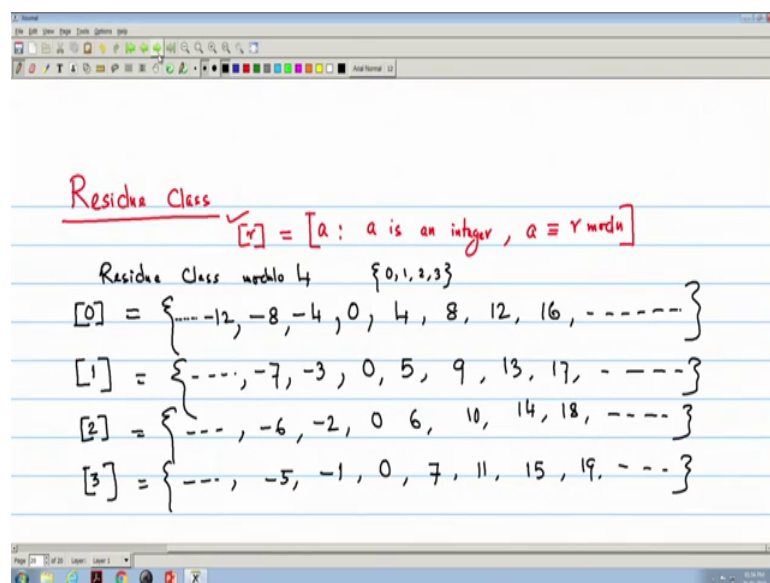 Journal
File Edit View Page Tools Options Help
Arial Normal 12
Residue Class
[r] = [a : a is an integer, a ≡ r mod n]
Residue Class modlo 4 {0, 1, 2, 3}
[0] = {..... -12, -8, -4, 0, 4, 8, 12, 16, ------}
[1] = {----, -7, -3, 0, 5, 9, 13, 17, -----}
[2] = {---, -6, -2, 0 6, 10, 14, 18, -----}
[3] = {---, -5, -1, 0, 7, 11, 15, 19, ---}
Page 20 of 20 Layer: Layer 1